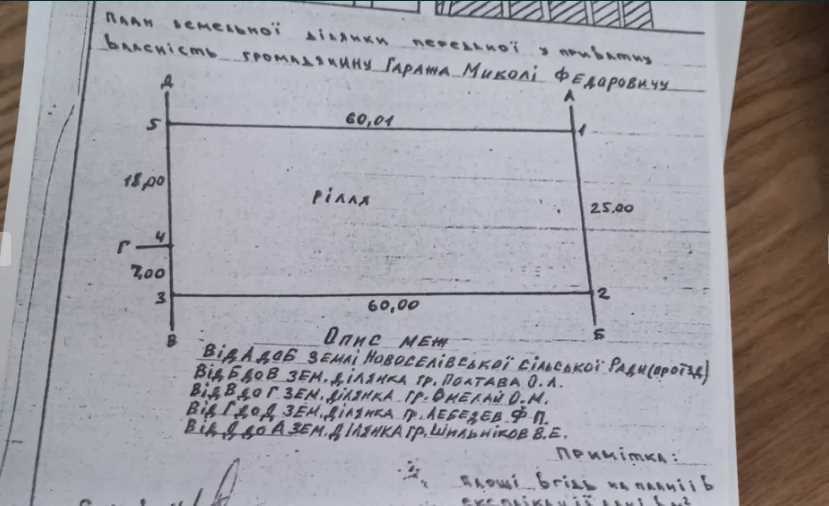 План земельної ділянки переданої у приватну
власність громадянину Гаража Миколі Федаровичу
Д
А
5
60,01
1
18,00
рілля
25.00
Г
4
7,00
3
60,00
2
В
Б
Опис меж
Від А до Б землі Новоселівської сільської Ради (проїзд)
Від Б до В зем. ділянка гр. Полтава О.Л.
Від В до Г зем. ділянка гр. Омелай О.М.
Від Г до Д зем. ділянка гр. Лебедев Ф.П.
Від Д до А зем. ділянка гр. Шильніков В.Е.
Примітка:
площі вгідь на планії в